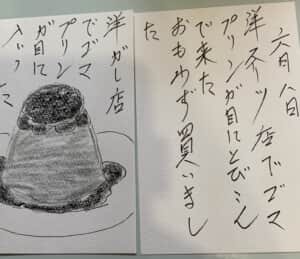 六月八日
洋スイツ店でゴマ
プリンが目にとびこん
で来た
おもわず買いまし
た
洋がし店
でゴマ
プリン
が目に
入っ
た